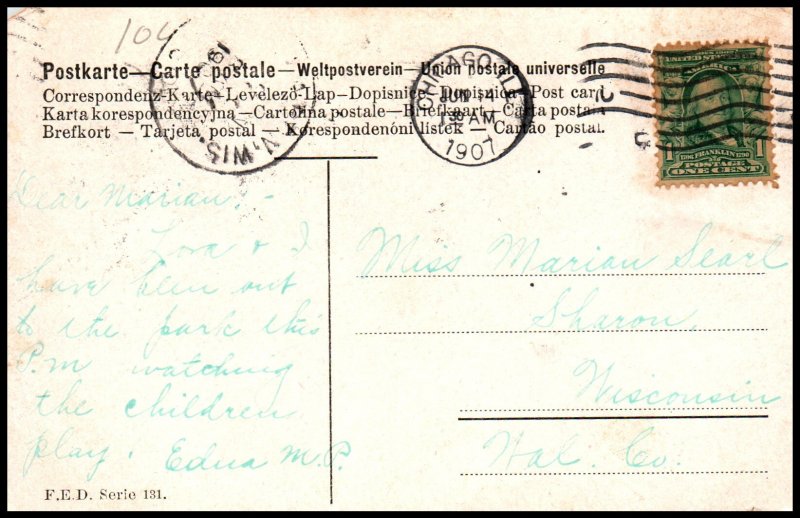 106
Postkarte—Carte postale—Weltpostverein—Union postale universelle
Correspondenz-Karte-Levelező-Lap-Dopisnice-Dopisnica-Post card
Karta korespondencyjna—Cartolina postale—Briefkaart—Carta postal
Brefkort — Tarjeta postal — Korespondenóni listek — Cartão postal.
V. WIS.
CHICAGO, ILL
JUN 4
AM
1907
UNITED STATES
1 1706 FRANKLIN 1790 1
POSTAGE
ONE CENT
Dear Marian:-
Lora & I
have been out
to the park this
P.m watching
the children
play. Edna M.P.
Miss Marian Searl
Sharon,
Wisconsin
Wal. Co.
F.E.D. Serie 131.